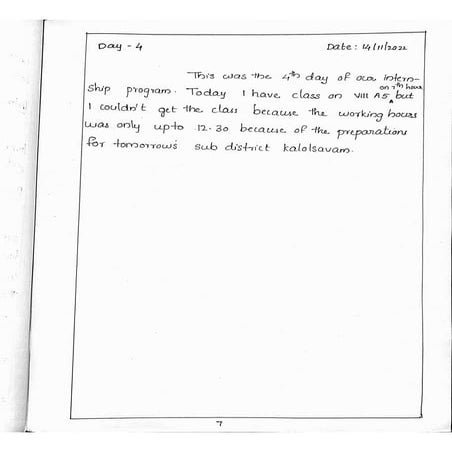 Day - 4 Date: 14/11/2022
This was the 4th day of our intern-
ship program. Today I have class on VIII A5 on 7th hour but
I couldn't get the class because the working hours
was only upto 12.30 because of the preparations
for tomorrow's sub district kalolsavam.
7